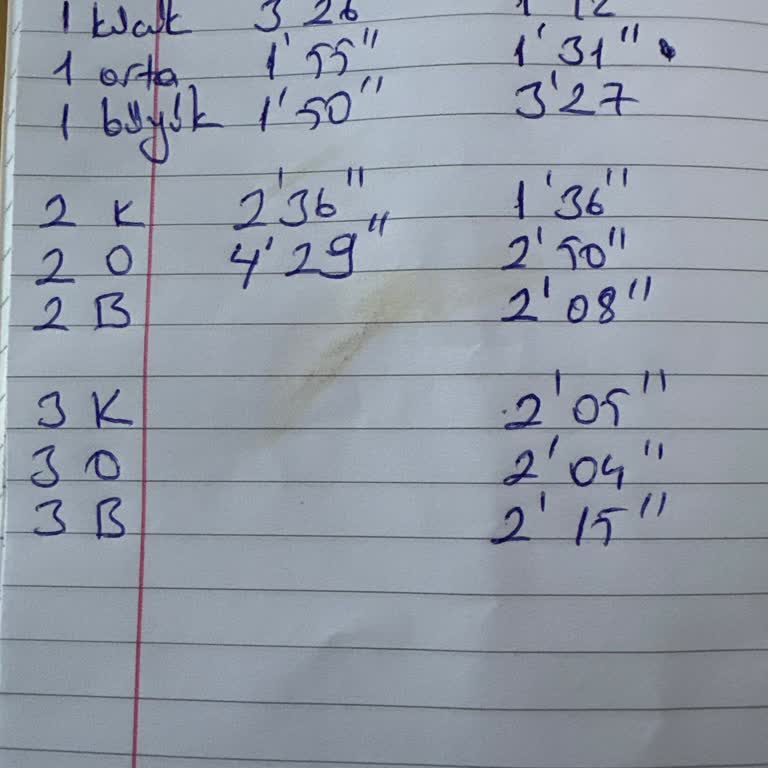 1 3'26
1 orta 1'55" 1'31"
1 büyük 1'50" 3'27
2 K 2'36" 1'36"
2 O 4'29" 2'50"
2 B 2'08"
3 K 2'05"
3 O 2'04"
3 B 2'15"